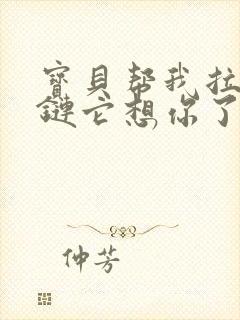 寶貝帮我拉
鏈它想你了
仲芳